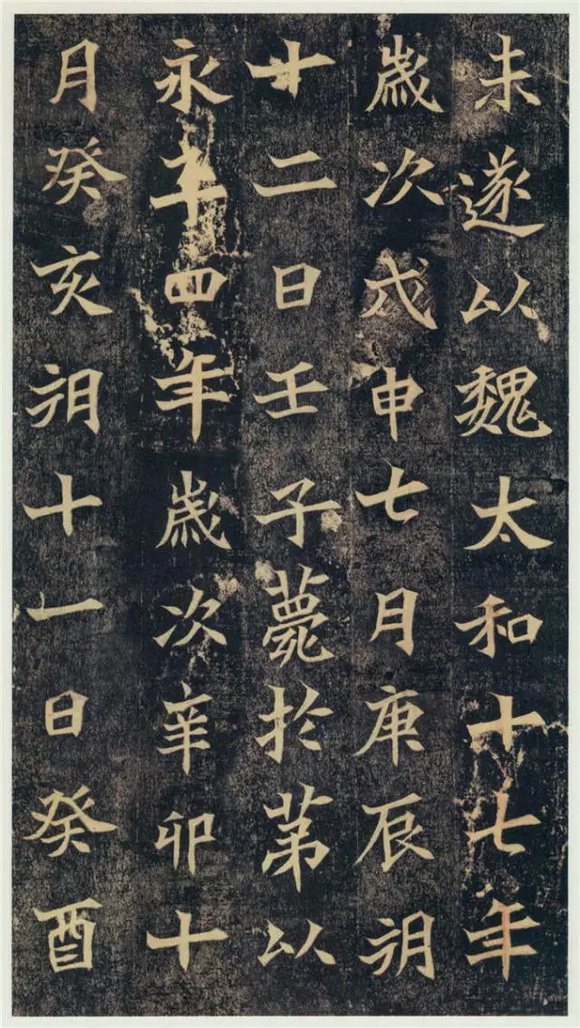 未遂以魏太和十七年
嵗次戊申七月庚辰朔
十二日壬子薨扵苐以
永平四年嵗次辛卯十
月癸亥朔十一日癸酉